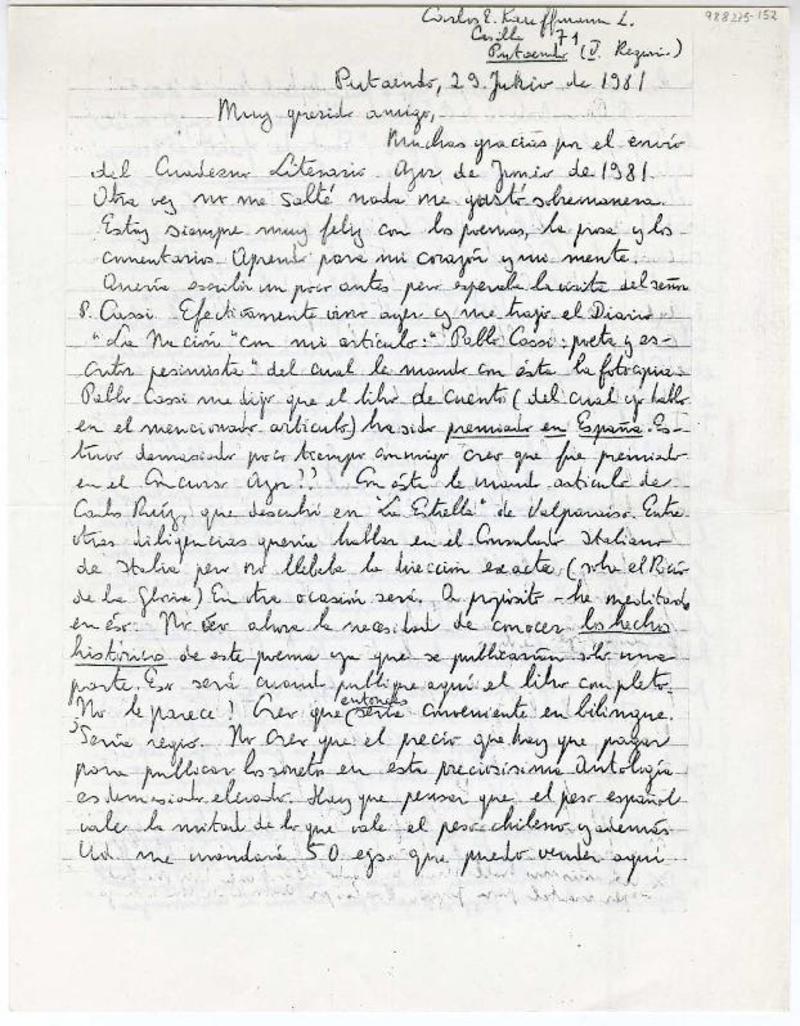 988275-152
Carlos E. Kauffmann L.
Casilla 71
Putaendo (V. Región)
Putaendo, 29 Julio de 1981
Muy querido amigo,
Muchas gracias por el envío
del Cuaderno Literario Azor de Junio de 1981.
Otra vez no me salté nada me gustó sobremanera.
Estoy siempre muy feliz con los poemas, la prosa y los
comentarios. Aprendo para mi corazón y mi mente.
Quería escribir un poco antes pero esperaba la visita del señor
P. Cassi. Efectivamente vino ayer y me trajo el Diario
"La Nación" con mi artículo: "Pablo Cassi: poeta y es-
critor pesimista" del cual le mando con ésta la fotocopia.
Pablo Cassi me dijo que el libro de cuento (del cual yo hablo
en el mencionado artículo) ha sido premiado en España. Es-
tuvo demasiado poco tiempo conmigo creo que fue premiado
en el Concurso Azor?? Con ésta le mando artículo de
Carlos Ruíz, que descubrí en "La Estrella" de Valparaíso. Entre
otras diligencias quería hablar en el Consulado Italiano
de Italia pero no llebaba la dirección exacta (sobre el
de la Gloria) En otra ocasión será. A propósito - he meditado
en éso. No veo ahora la necesidad de conocer los hechos
histórico de este poema ya que se publicarán sólo una
parte. Eso será cuando publique aquí el libro completo.
¿No le parece! Creo que entonces sería conveniente en bilingue.
Sería regio. No creo que el precio que hay que pagar
para publicar los sonetos en esta preciosísima Antología
es demasiado elevado. Hay que pensar que el peso español
vale la mitad de lo que vale el peso chileno y además
Ud. me mandará 50 ejs. que puedo vender aquí